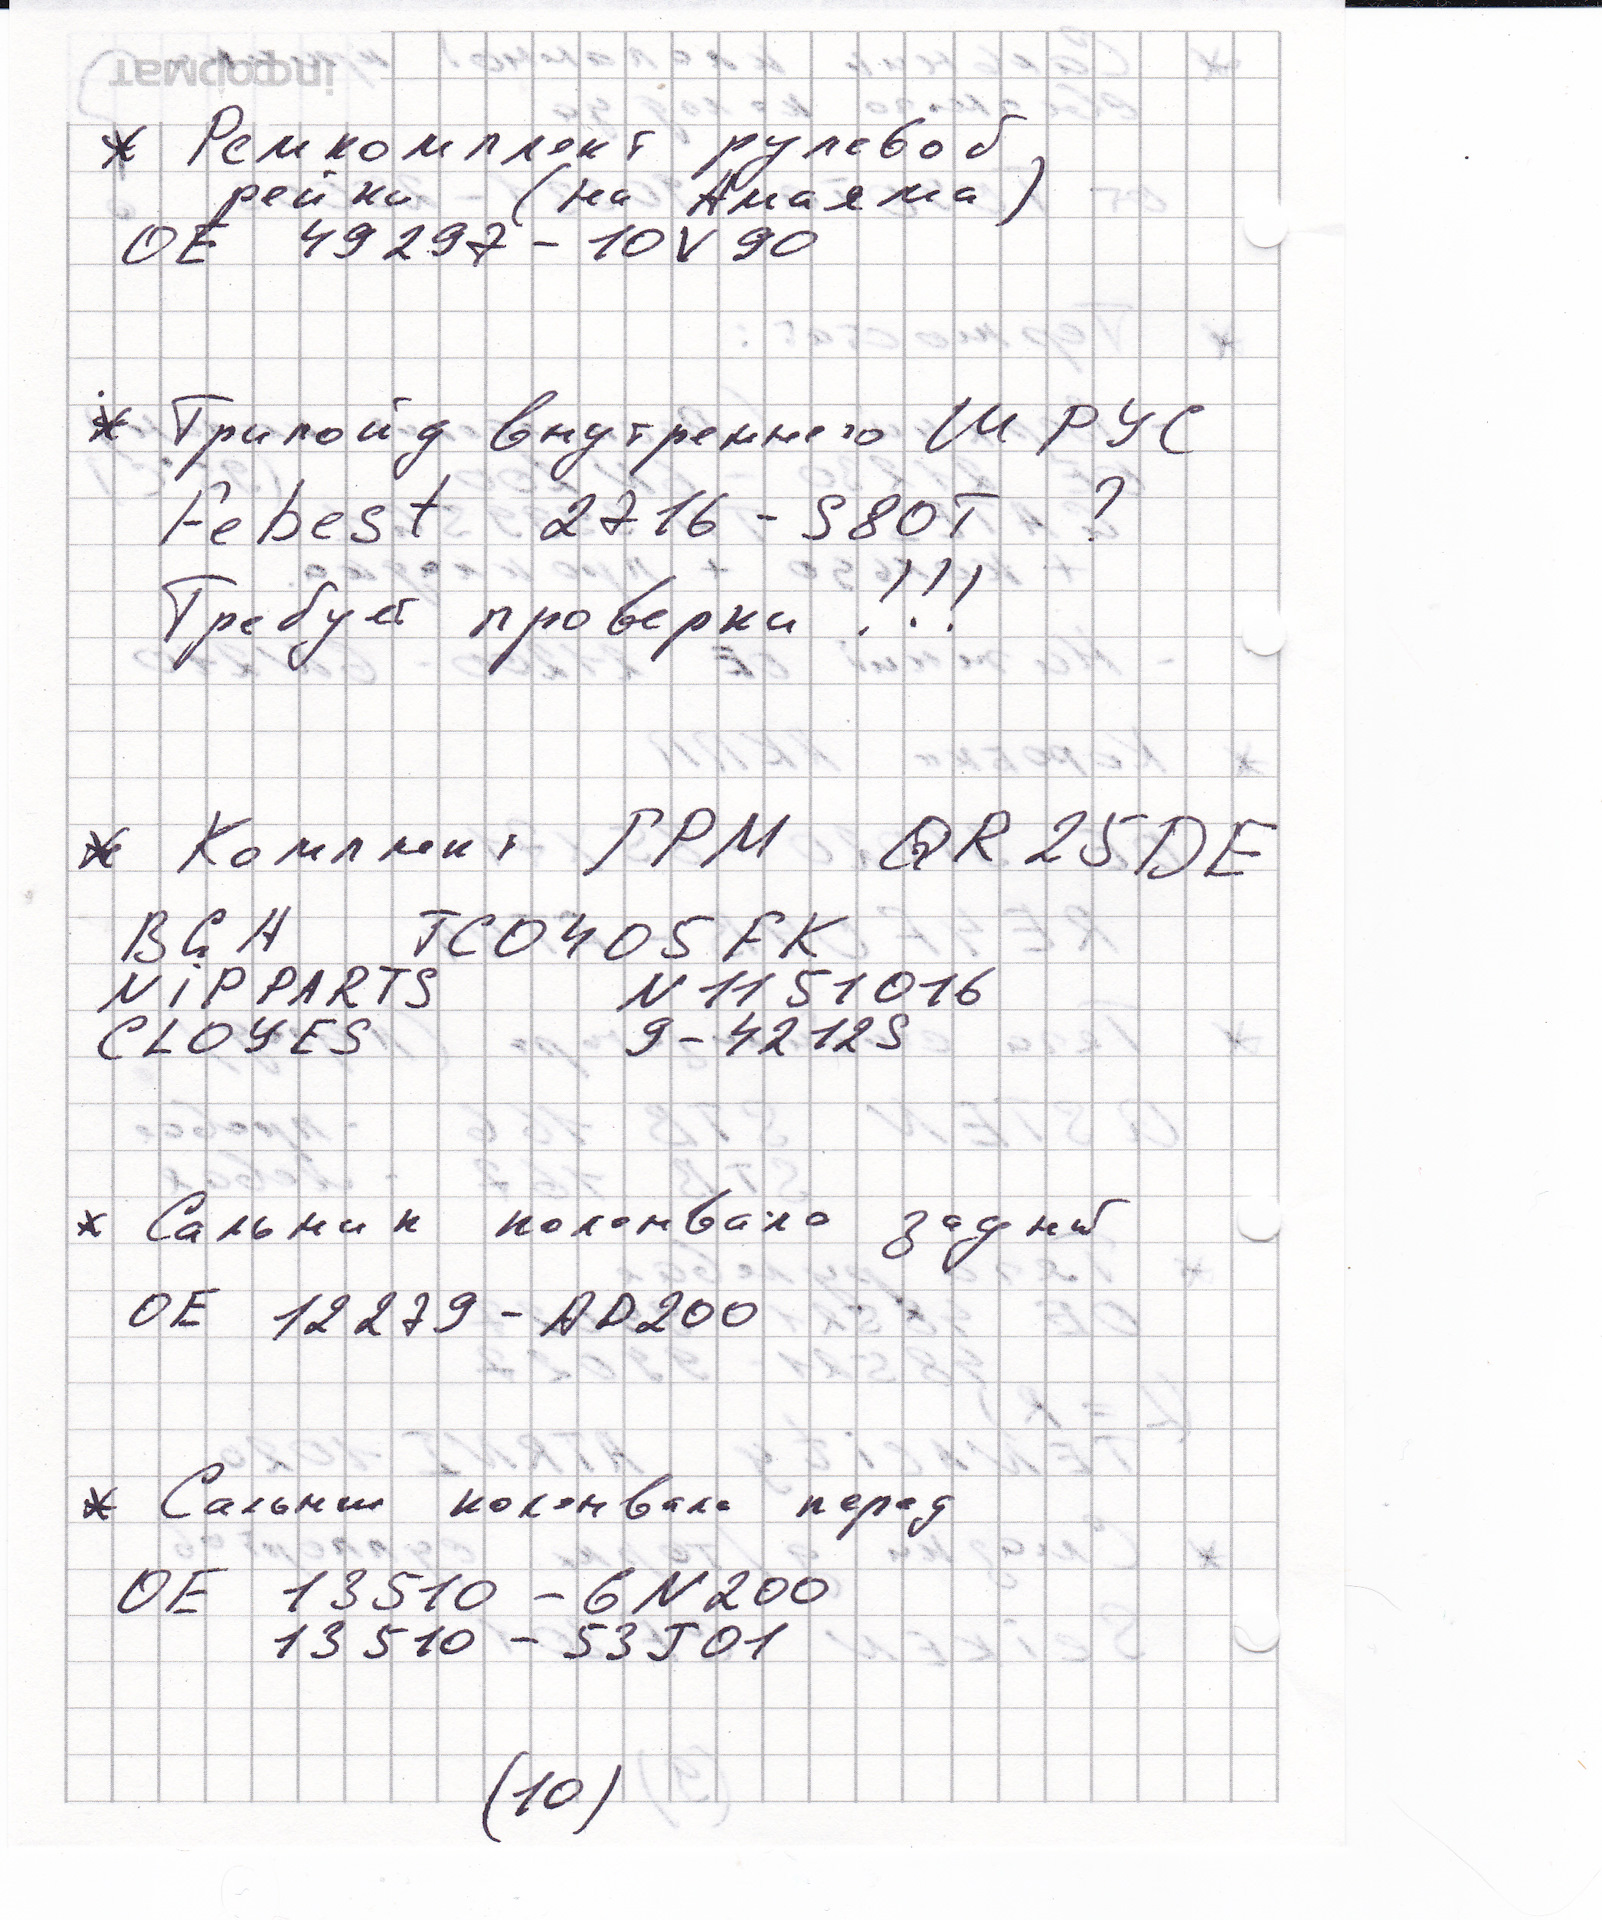 * Ремкомплект рулевой
рейки (на Амаяма)
OE 49297-10V90
* Трипойд внутреннего ШРУС
Febest 2716-S80T ?
Требует проверки !!!
* Комплект ГРМ QR25DE
BGA TC0405FK
NiPPARTS N1151016
CLOYES 9-4212S
* Сальник коленвала задний
OE 12279-AD200
* Сальник коленвала перед
OE 13510-6N200
13510-53J01
(10)